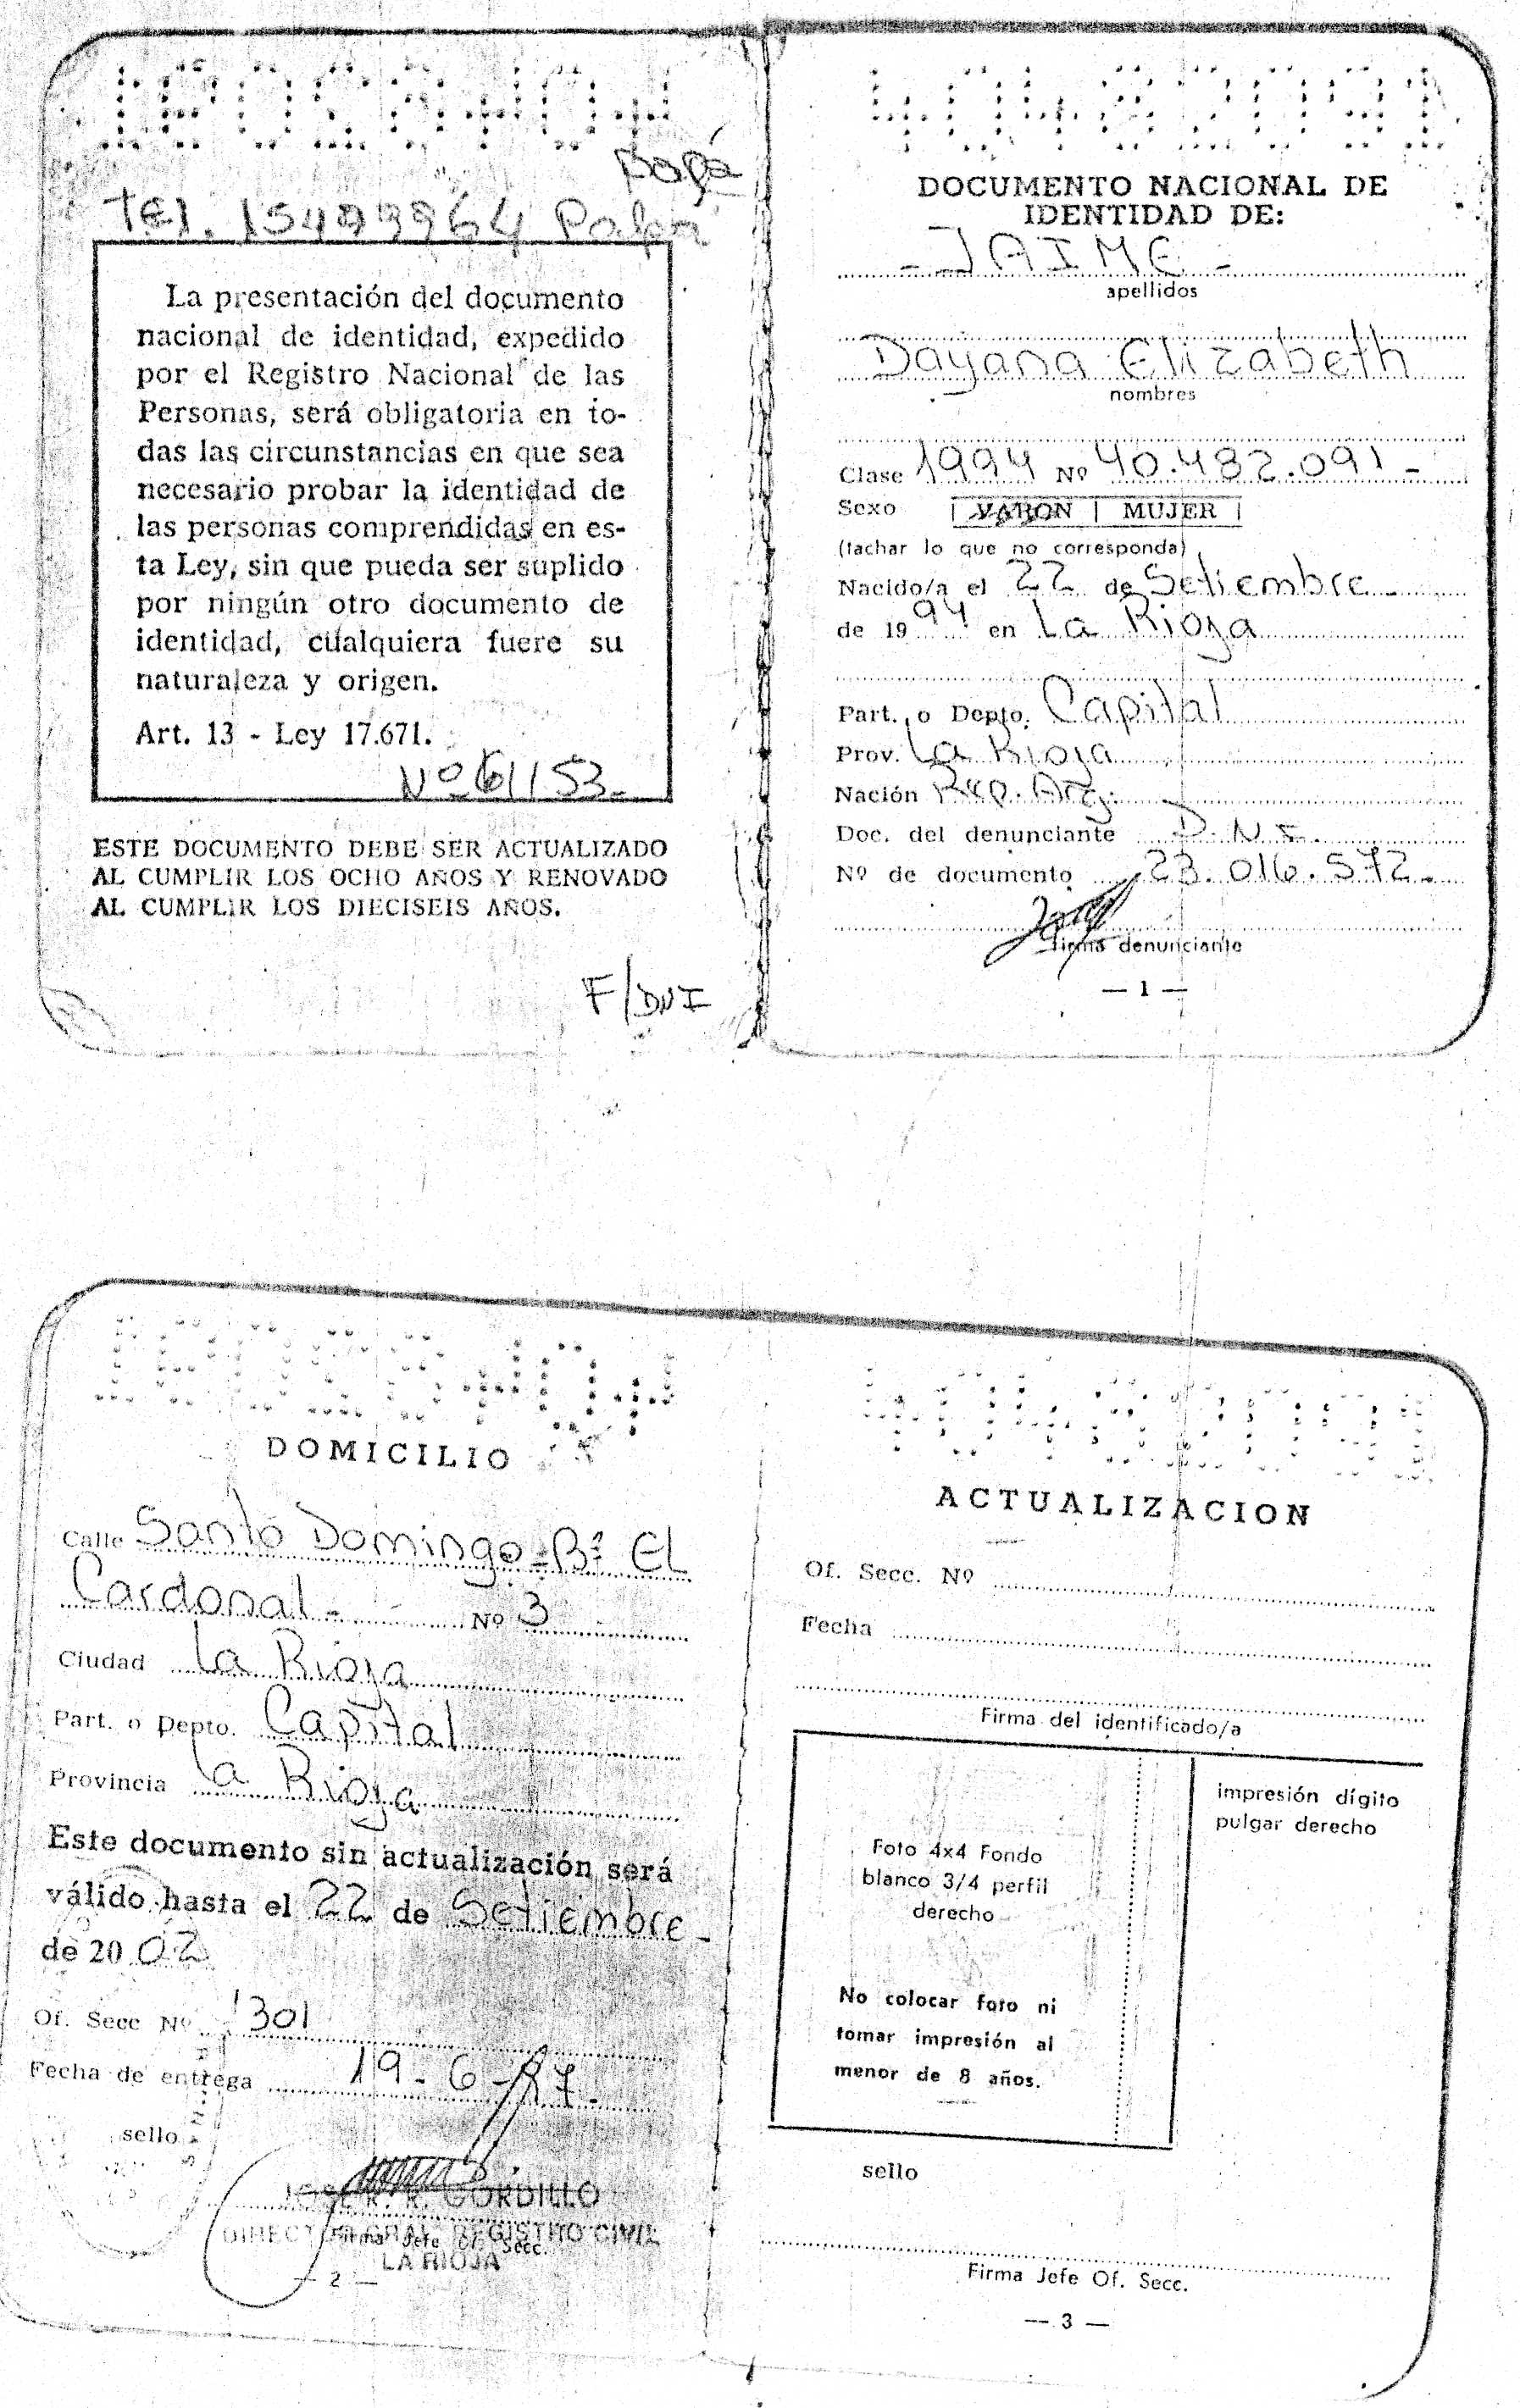 40482091
Papá
Tel. 15499964 Papá
La presentación del documento
nacional de identidad, expedido
por el Registro Nacional de las
Personas, será obligatoria en to-
das las circunstancias en que sea
necesario probar la identidad de
las personas comprendidas en es-
ta Ley, sin que pueda ser suplido
por ningún otro documento de
identidad, cualquiera fuere su
naturaleza y origen.
Art. 13 - Ley 17.671.
Nº 61153-
ESTE DOCUMENTO DEBE SER ACTUALIZADO
AL CUMPLIR LOS OCHO AÑOS Y RENOVADO
AL CUMPLIR LOS DIECISEIS AÑOS.
F/DNI
40482091
DOCUMENTO NACIONAL DE
IDENTIDAD DE:
- JAIME -
apellidos
Dayana Elizabeth
nombres
Clase 1994 Nº 40.482.091-
Sexo VARON | MUJER
(tachar lo que no corresponda)
Nacido/a el 22 de Setiembre-
de 1994 en La Rioja
Part. o Depto. Capital
Prov. La Rioja
Nación Rep. Arg.
Doc. del denunciante D.N.I.
Nº de documento 23.016.572.
firma denunciante
— 1 —
40482091
DOMICILIO
Calle Santo Domingo-Bº El
Cardonal- Nº 3
Ciudad La Rioja
Part. o Depto. Capital
Provincia La Rioja
Este documento sin actualización será
válido hasta el 22 de Setiembre-
de 20 02
Of. Secc Nº 1301
Fecha de entrega 19-6-97-
sello
R. R. GORDILLO
DIRECTOR GRAL. REGISTRO CIVIL
Firma Jefe Of. Secc.
LA RIOJA
— 2 —
40482091
ACTUALIZACION
Of. Secc. Nº
Fecha
Firma del identificado/a
Foto 4x4 Fondo
blanco 3/4 perfil
derecho
No colocar foto ni
tomar impresión al
menor de 8 años.
impresión dígito
pulgar derecho
sello
Firma Jefe Of. Secc.
— 3 —